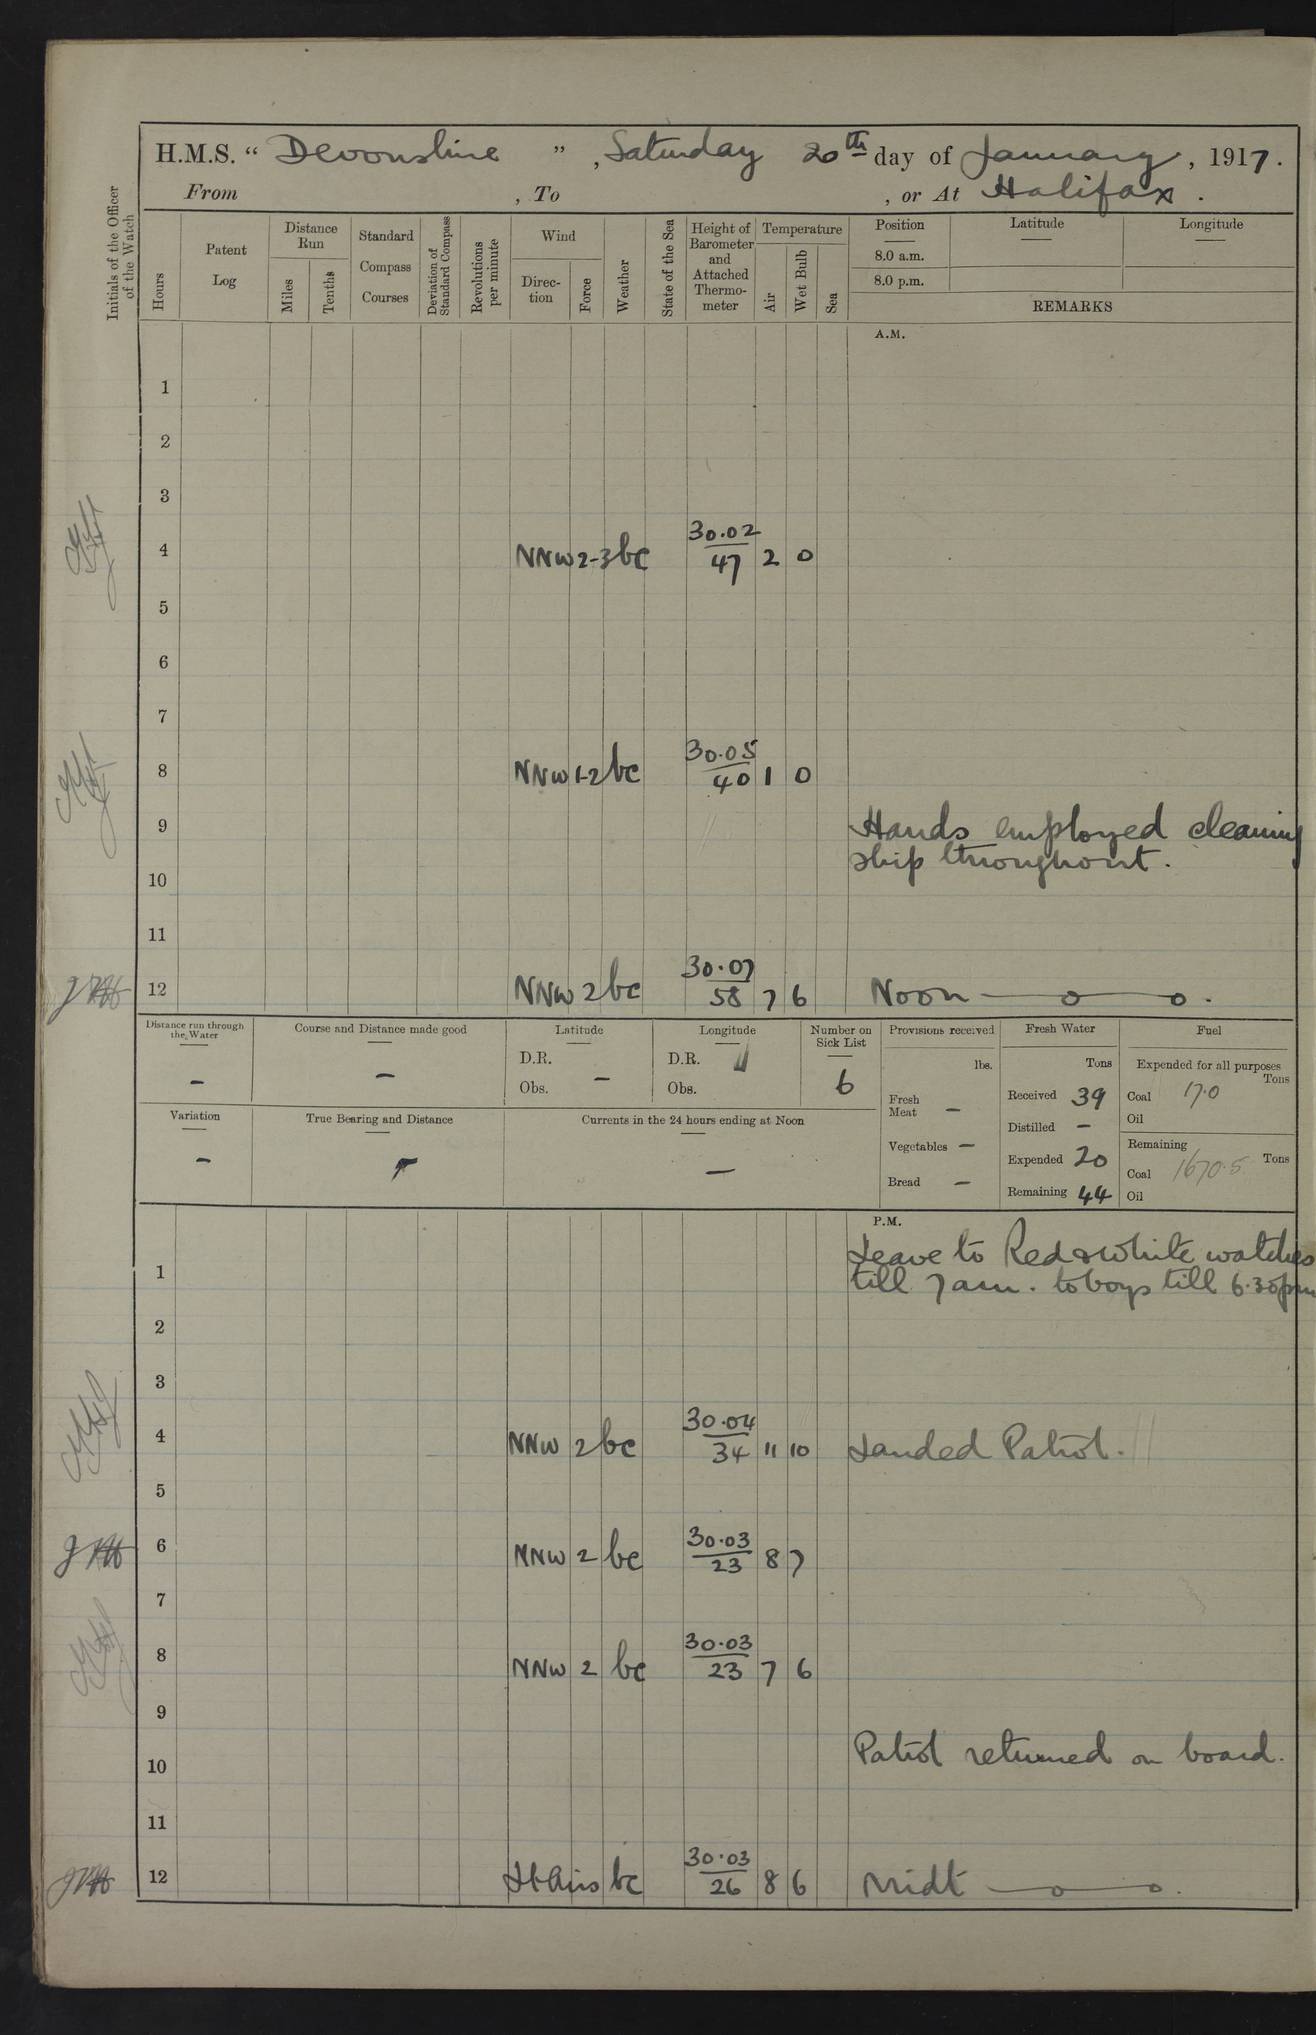 H.M.S. " Devonshire ", Saturday 20th day of January, 1917.
From , To , or At Halifax.
Initials of the Officer of the Watch
Hours
Patent Log
Distance Run
Miles
Tenths
Standard Compass Courses
Deviation of Standard Compass
Revolutions per minute
Wind
Direction
Force
Weather
State of the Sea
Height of Barometer and Attached Thermometer
Temperature
Air
Wet Bulb
Sea
Position
Latitude
Longitude
8.0 a.m.
8.0 p.m.
REMARKS
A.M.
1
2
3
4 NNW 2-3 bc 30.02 47 2 0
5
6
7
8 NNW 1-2 bc 30.05 40 1 0
9 Hands employed cleaning
ship throughout.
10
11
12 NNW 2 bc 30.07 58 7 6 Noon
Distance run through the Water
–
Course and Distance made good
–
Latitude
D.R.
Obs. –
Longitude
D.R.
Obs.
Number on Sick List
6
Provisions received
lbs.
Fresh Meat –
Vegetables –
Bread –
Fresh Water
Tons
Received 39
Distilled –
Expended 20
Remaining 44
Fuel
Expended for all purposes
Tons
Coal 17.0
Oil
Remaining
Tons
Coal 1670.5
Oil
Variation
–
True Bearing and Distance
–
Currents in the 24 hours ending at Noon
–
P.M.
Leave to Red & White watches
1 till 7 am. to boys till 6.30 pm
2
3
4 NNW 2 bc 30.04 34 11 10 Landed Patrol.
5
6 NNW 2 bc 30.03 23 8 7
7
8 NNW 2 bc 30.03 23 7 6
9
Patrol returned on board.
10
11
12 Lt Airs bc 30.03 26 8 6 Midt